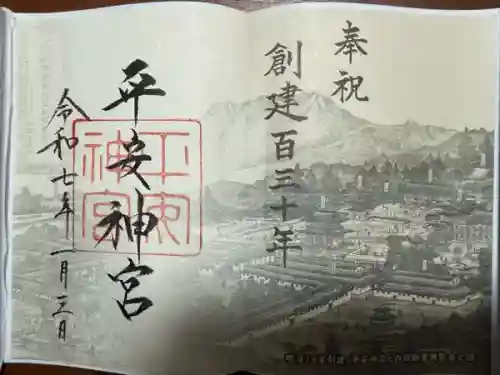 奉祝
創建百三十年
平安神宮
平安神宮
令和七年一月三日